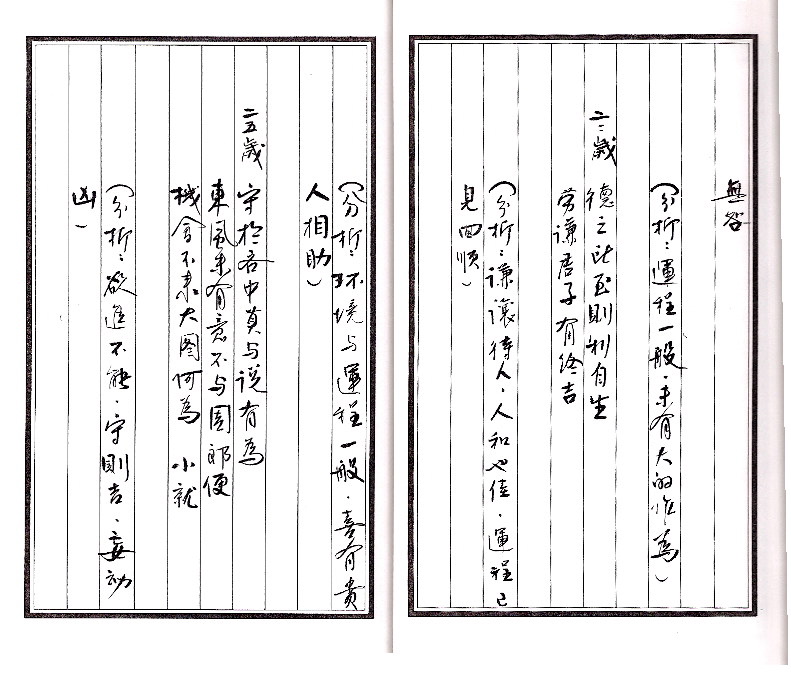 無咎
(分析:運程一般.未有大的作為)
二三歲 德之所至則利自生
勞謙君子有終吉
(分析:謙讓待人.人和也佳.運程已
見回順)
(分析:環境与運程一般.喜有貴
人相助)
二五歲 守於吝中莫与說有為
東風未有意不与周郎便
機會不來大圖何為 小就
(分析:欲進不能.守則吉.妄动
凶)